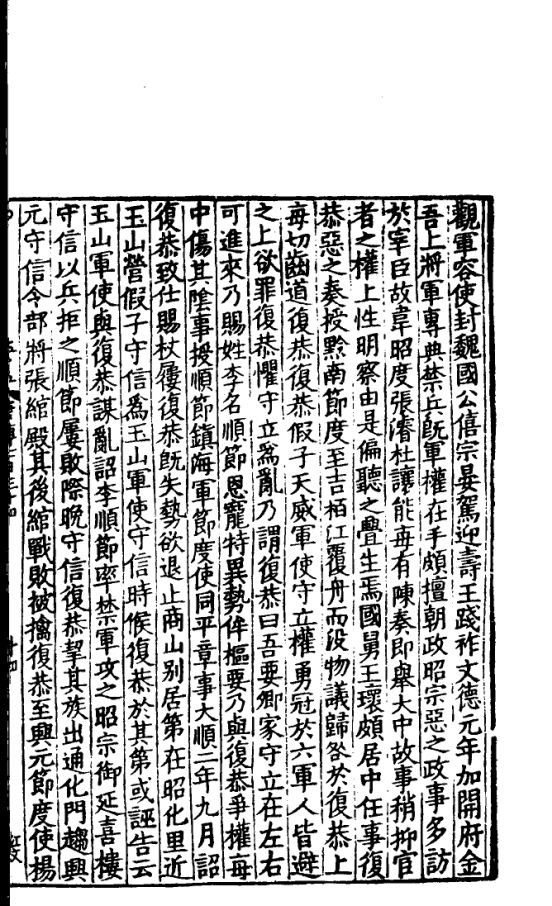 觀軍容使封魏國公僖宗晏駕迎壽王踐祚文德元年加開府金
吾上將軍專典禁兵旣軍權在手頗擅朝政昭宗惡之政事多訪
於宰臣故韋昭度張濬杜讓能每有陳奏即舉大中故事稍抑宦
者之權上性明察由是偏聽之釁生焉國舅王瓌頗居中任事復
恭惡之奏授黔南節度至吉柏江覆舟而没物議歸咎於復恭上
每切齒道復恭復恭假子天威軍使守立權勇冠於六軍人皆避
之上欲罪復恭懼守立爲亂乃謂復恭曰吾要卿家守立在左右
可進來乃賜姓李名順節恩寵特異勢侔樞要乃與復恭爭權每
中傷其陰事授順節鎮海軍節度使同平章事大順二年九月詔
復恭致仕賜杖屨復恭旣失勢欲退止商山别居第在昭化里近
玉山營假子守信爲玉山軍使守信時候復恭於其第或誣告云
玉山軍使與復恭謀亂詔李順節率禁軍攻之昭宗御延喜樓
守信以兵拒之順節屢敗際晚守信復恭挈其族出通化門趨興
元守信令部將張綰殿其後綰戰敗被擒復恭至興元節度使楊